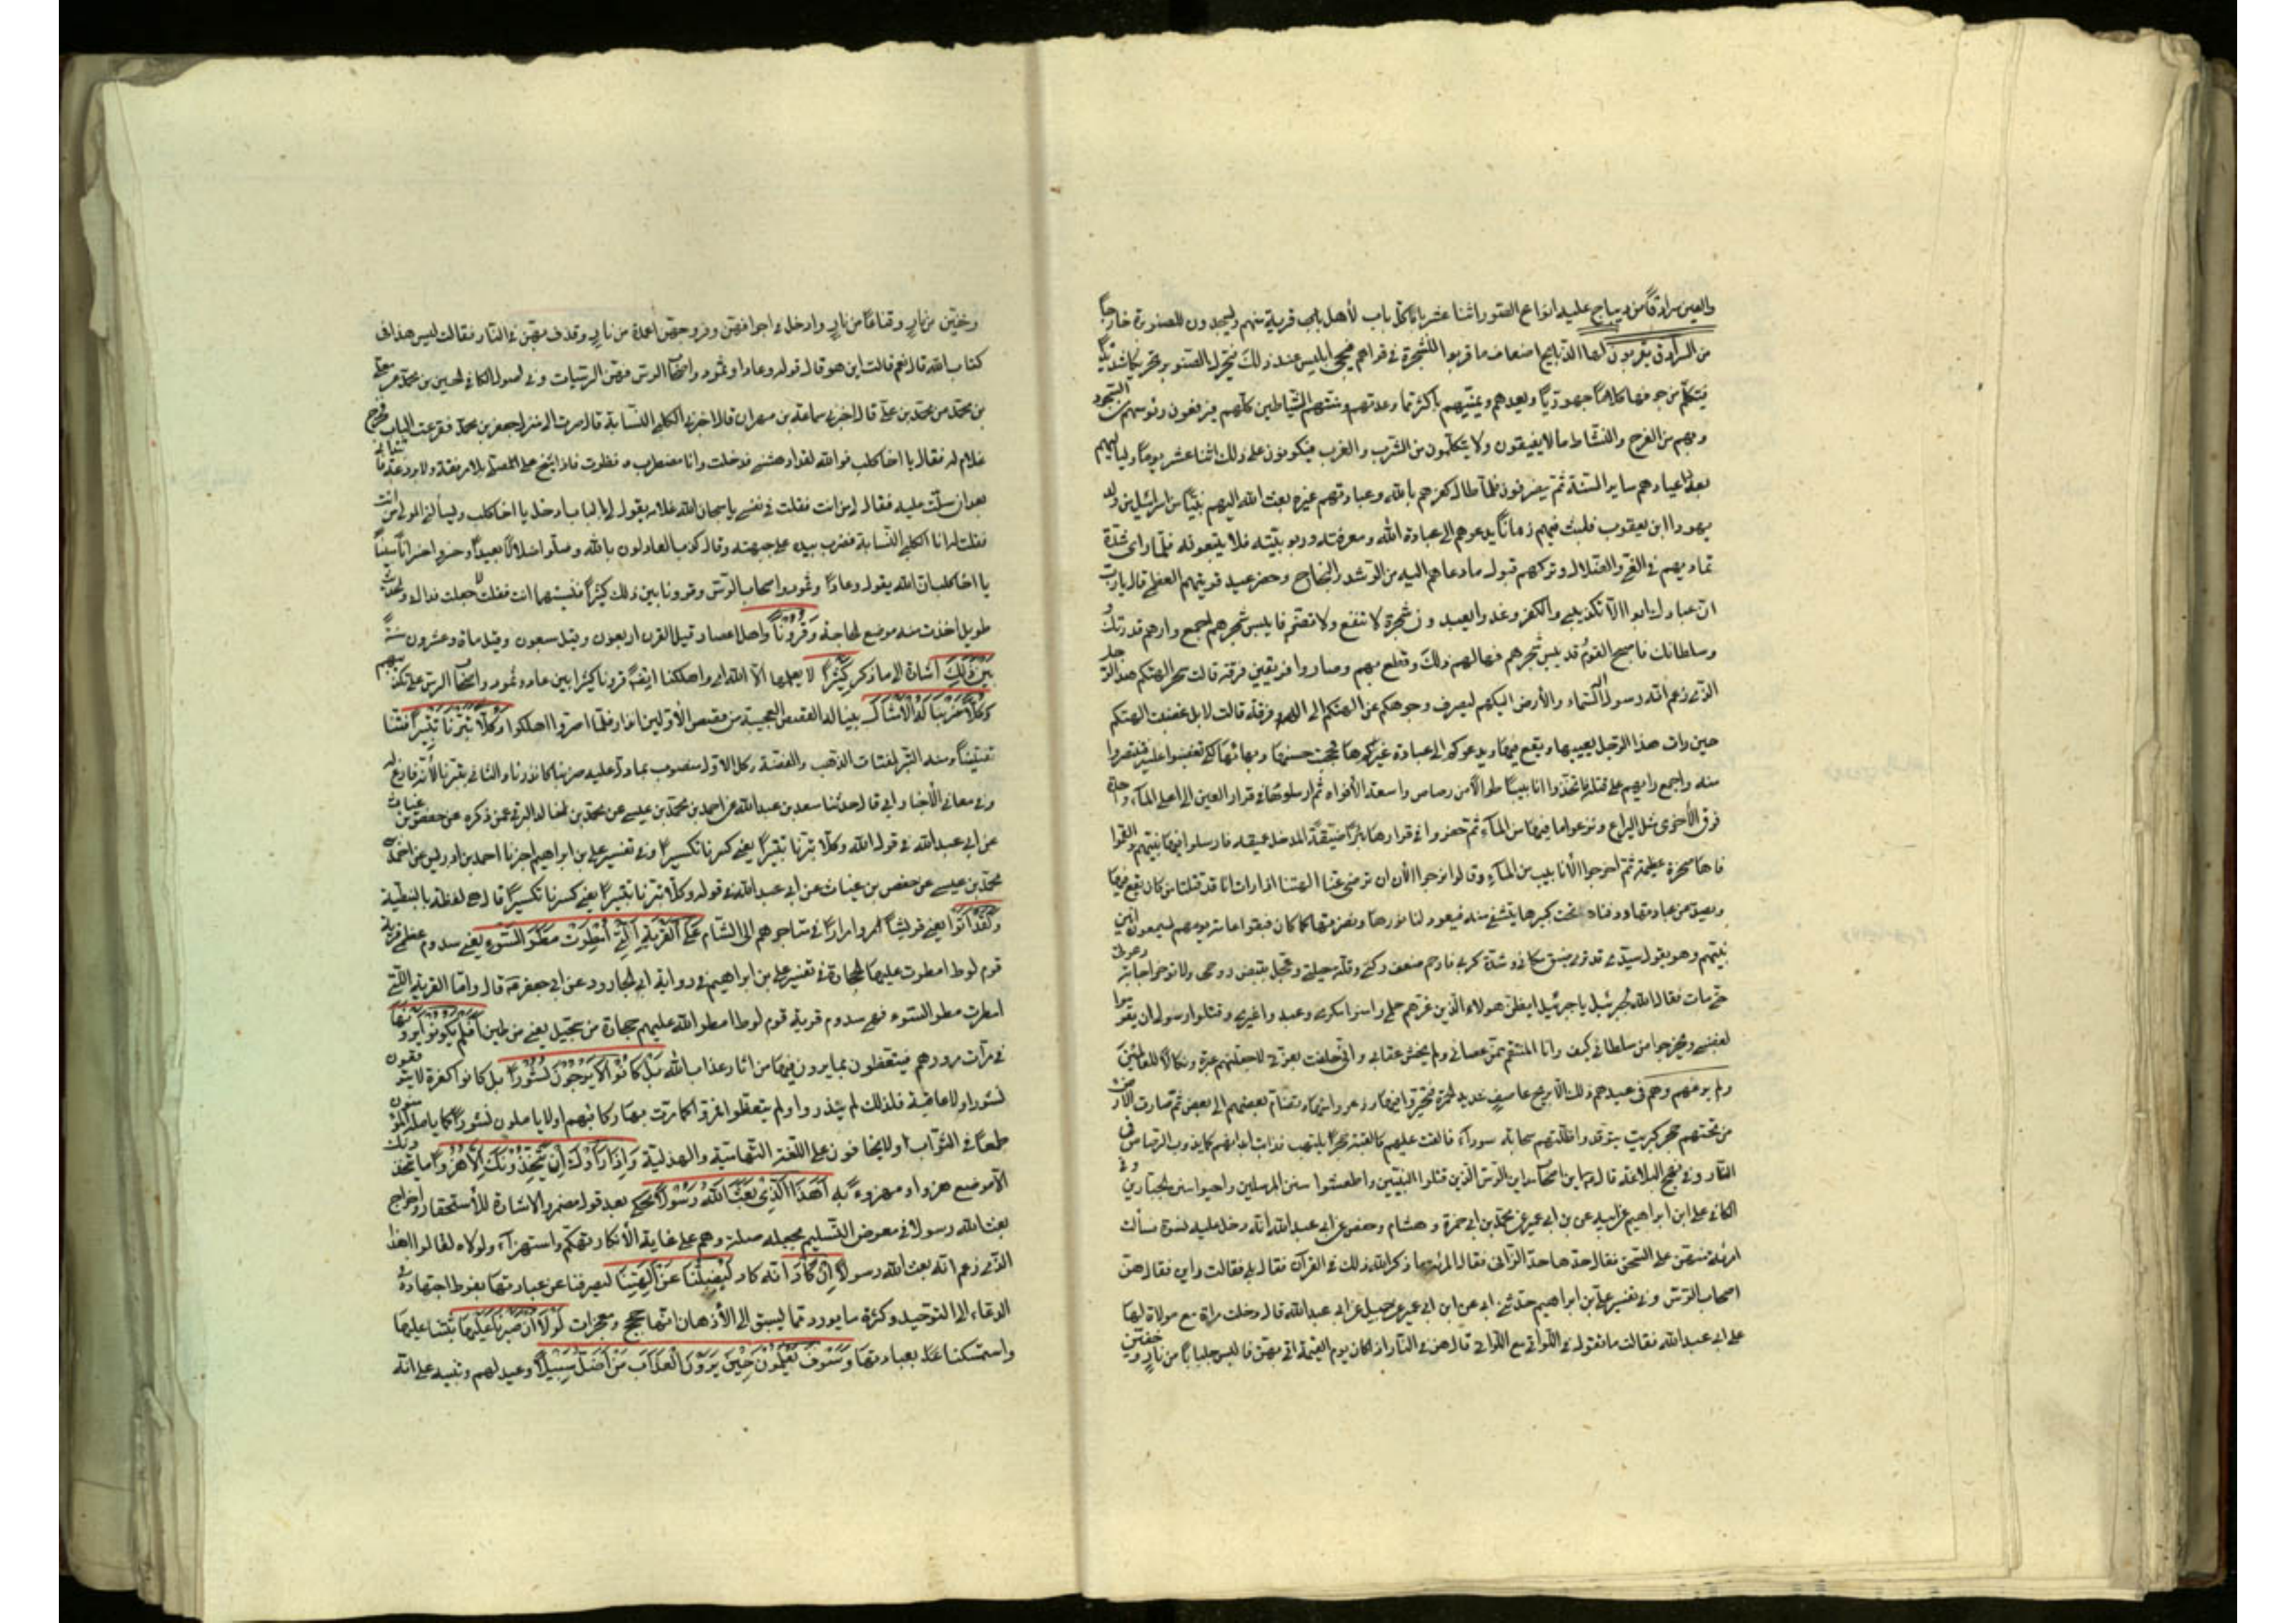 والعين سرادقا من ديباج عليه انواع الصور اثنا عشر بابا كل باب لأهل قرية منهم ويسجدون للصنوبرة خارجا
من السرادق يقربون لها الذبايح اضعاف ما قربوا للشجرة في قراهم فيجئ ابليس عند ذلك فيحرك الصنوبرة تحريكا شديدا
فيتكلم من جوفها كلاما جهوريا ويعدهم ويمنيهم باكثر مما وعدتهم ومنتهم الشياطين كلهم فيرفعون رؤسهم من السجود
وبهم من الفرح والنشاط ما لا يفيقون ولا يتكلمون من الشرب والعزف فيكونون على ذلك اثنا عشر يوما ولياليهم
بعدد اعيادهم ساير السنة ثم ينصرفون فلما طال كفرهم بالله وعبادتهم غيره بعث الله اليهم نبيا من بني اسرائيل من ولد
يهودا ابن يعقوب فلبث فيهم زمانا يدعوهم الى عبادة الله ومعرفته وربوبيته فلا يتبعونه فلما راى شدة
تماديهم في الغي والضلال وتركهم قبول ما دعاهم اليه من الرشد والنجاح وحضر عيد قريتهم العظمى قال يا رب
ان عبادك ابوا الا تكذيبي والكفر وغدوا يعبدون شجرة لا تنفع ولا تضر فايبس شجرهم اجمع وارهم قدرتك
وسلطانك فاصبح القوم قد يبس شجرهم فهالهم ذلك وقطع بهم وصاروا فريقين فرقة قالت سحر الهتكم هذا الرجل
الذي زعم انه رسول السماء والأرض اليكم ليصرف وجوهكم عن الهتكم الى الهه وفرقة قالت لا بل غضبت الهتكم
حين رات هذا الرجل يعيبها ويقع فيها ويدعوكم الى عبادة غيرها فحجبت حسنها وبهائها لكي تغضبوا عليه فتنتصروا
منه واجمع رايهم على قتله فاتخذوا انابيبا طوالا من رصاص واسعة الأفواه ثم ارسلوها في قرار العين الى اعلى الماء واحدة
فوق الأخرى مثل البرابخ ونزعوا ما فيها من الماء ثم حفروا في قرارها بئرا ضيقة المدخل عميقة فارسلوا فيها نبيهم والقموا
فاها صخرة عظيمة ثم اخرجوا الأنابيب من الماء وقالوا نرجوا الأن ان ترضى عنا الهتنا اذا رات انا قد قتلنا من كان يقع فيها
ويصد عن عبادتها ودفناه تحت كبيرها يتشفى منه فيعود لنا نورها ونضرتها كما كان فبقوا عامة يومهم يسمعون انين
نبيهم وهو يقول سيدي قد ترى ضيق مكاني وشدة كربي فارحم ضعف ركني وقلة حيلتي وعجل بقبض روحي ولا تؤخر اجابة دعوتي
حتى مات فقال الله لجبرئيل يا جبرئيل ايظن هولاء الذين غرهم حلمي وامنوا مكري وعبدوا غيري وقتلوا رسولي ان يقوموا
لغضبي ويخرجوا من سلطاني كيف وانا المنتقم ممن عصاني ولم يخش عقابي واني حلفت بعزتي لاجعلنهم عبرة ونكالا للعالمين
ولم يرعهم وهم في عيدهم ذلك الا بريح عاصف شديد الحمرة فتحيروا فيها وذعروا منها وتضام بعضهم الى بعض ثم صارت الأرض
من تحتهم حجر كبريت يتوقد واظلتهم سحابة سوداء فالقت عليهم كالقبة جمرا يلتهب فذابت ابدانهم كما يذوب الرصاص في
النار وفي نهج البلاغة قال اين اصحاب مداين الرس الذين قتلوا النبيين واطفئوا سنن المرسلين واحيوا سنن الجبارين وفي
الكافي علي ابن ابراهيم عن ابيه عن بن ابي عمير عن محمد بن ابي حمزة وهشام وحفص عن ابي عبد الله انه دخل عليه نسوة فسألت
امرئة منهن على السحق فقال حدها حد الزاني فقالت المرئة ما ذكر الله ذلك في القرآن فقال بلى فقالت واين فقال هن
اصحاب الرس وفي تفسير علي بن ابراهيم حدثني ابي عن ابن ابي عمير عن جميل عن ابي عبد الله قال دخلت مراة مع مولاة لها
على ابي عبد الله فقالت ما تقول في اللواتي مع اللواتي قال هن في النار اذا كان يوم القيمة اتي بهن فالبسن جلبابا من نار وخفين
وخفين من نار وقناعا من نار وادخل في اجوافهن وفروجهن اعمدة من نار وقذف بهن في النار فقالت ليس هذا في
كتاب الله قال نعم قالت اين هو قال قوله وعادا وثمود واصحاب الرس فهن الرسيات وفي اصول الكافي الحسين بن محمد عن معلى
بن محمد عن محمد بن علي قال اخبرني سماعة بن مهران قال اخبرني الكلبي النسابة قال صرت الى منزل جعفر بن محمد فقرعت الباب فخرج
غلام له فقال يا اخا كلب فوالله لقد ادهشني فدخلت وانا مضطرب ونظرت فاذا شيخ على مصلى بلا مرفقة ولا بردعة فابتداني
بعد ان سلمت عليه فقال لي من انت فقلت في نفسي يا سبحان الله غلامه يقول لي بالباب ادخل يا اخا كلب ويسألني المولى من انت
فقلت له انا الكلبي النسابة فضرب بيده على جبهته وقال كذب العادلون بالله وضلوا ضلالا بعيدا وخسروا خسرانا مبينا
يا اخا كلب ان الله يقول وعادا وثمود واصحاب الرس وقرونا بين ذلك كثيرا فنسبتها انت فقلت لا جعلت فداك والحديث
طويل اخذت منه موضع الحاجة وقرونا واهل اعصار قيل القرن اربعون وقيل سبعون وقيل مأة وعشرون سنة
بين ذلك اشارة الى ما ذكر كثيرا لا يعلمها الا الله اي واهلكنا ايضا قرونا كثيرا بين عاد وثمود واصحاب الرس على تكذيبهم
وكلا ضربنا له الأمثال بينا له القصص العجيبة من قصص الأولين انذارا فلما اصروا اهلكوا وكلا تبرنا تتبيرا فتتنا
تفتيتا ومنه التبر لفتات الذهب والفضة وكل الاول منصوب بما دل عليه ضربنا كانذرنا والثاني بتبرنا لأنه فارغ له
وفي معاني الأخبار ابي قال حدثنا سعد بن عبد الله عن احمد بن محمد بن عيسى عن محمد بن خالد البرقي عمن ذكره عن حفص بن غياث
عن ابي عبد الله في قول الله وكلا تبرنا تتبيرا يعني كسرنا تكسيرا وفي تفسير علي بن ابراهيم اخبرنا احمد بن ادريس عن احمد بن
محمد بن عيسى عن حفص بن غياث عن ابي عبد الله في قوله وكلا تبرنا تتبيرا يعني كسرنا تكسيرا قال هي لفظة بالنبطية
ولقد اتوا يعني قريشا مروا مرارا في متاجرهم الى الشام على القرية التي امطرت مطر السوء يعني سدوم عظمى قرية
قوم لوط امطرت عليها الحجارة في تفسير علي بن ابراهيم في رواية ابي الجارود عن ابي جعفر قال واما القرية التي
امطرت مطر السوء فهي سدوم قرية قوم لوط امطر الله عليهم حجارة من سجيل يعني من طين افلم يكونوا يرونها
في مرات مرورهم فيتعظون بما يرون فيها من اثار عذاب الله بل كانوا لا يرجون نشورا بل كانوا كفرة لا يتوقعون
نشورا ولا عاقبة فلذلك لم ينذروا ولم يتعظوا فمروا كما مرت بها ركابهم او لا ياملون نشورا كما يامله المؤمنون
طمعا في الثواب او لا يخافون على اللغة التهامية والهذلية واذا رأوك ان يتخذونك الا هزوا ما يتخذونك
الا موضع هزو او مهزوء به اهذا الذي بعث الله رسولا محكي بعد قول مضمر والاشارة للأستحقار واخراج
بعث الله رسولا في معرض التسليم بجعله صلة وهم على غاية الأنكار تهكم واستهزآء ولولاه لقالوا اهذا
الذي زعم انه بعث الله رسولا ان كاد انه كاد ليضلنا عن الهتنا ليصرفنا عن عبادتها بفرط اجتهاده في
الدعاء الى التوحيد وكثرة ما يورد مما يسبق الى الأذهان انها حجج ومعجزات لولا ان صبرنا عليها ثبتنا عليها
واستمسكنا بعبادتها وسوف يعلمون حين يرون العذاب من اضل سبيلا وعيد لهم وتنبيه على انه